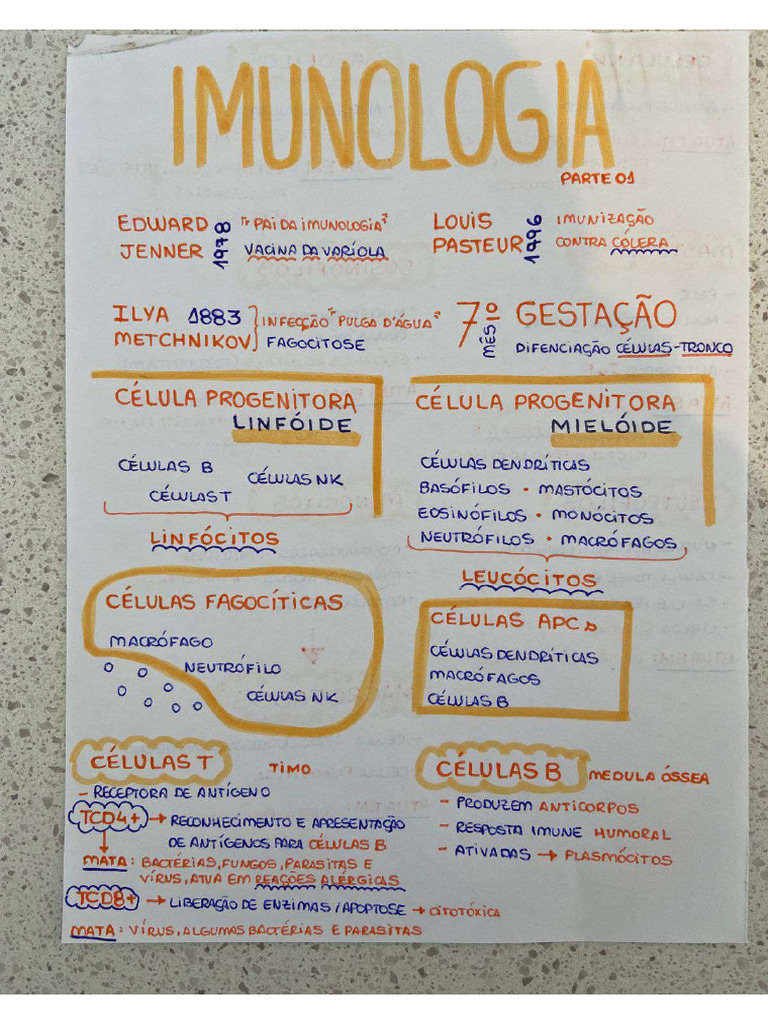 IMUNOLOGIA
PARTE 01
EDWARD JENNER 1978 "PAI DA IMUNOLOGIA"
VACINA DA VARÍOLA
LOUIS PASTEUR 1996 IMUNIZAÇÃO
CONTRA CÓLERA
ILYA 1883 INFECÇÃO "PULGA D'ÁGUA"
METCHNIKOV FAGOCITOSE
7º MÊS GESTAÇÃO
DIFENCIAÇÃO CÉLULAS-TRONCO
CÉLULA PROGENITORA
LINFÓIDE
CÉLULAS B
CÉLULAS NK
CÉLULAS T
LINFÓCITOS
CÉLULA PROGENITORA
MIELÓIDE
CÉLULAS DENDRÍTICAS
BASÓFILOS • MASTÓCITOS
EOSINÓFILOS • MONÓCITOS
NEUTRÓFILOS • MACRÓFAGOS
LEUCÓCITOS
CÉLULAS FAGOCÍTICAS
MACRÓFAGO
NEUTRÓFILO
CÉLULAS NK
CÉLULAS APCs
CÉLULAS DENDRÍTICAS
MACRÓFAGOS
CÉLULAS B
CÉLULAS T TIMO
- RECEPTORA DE ANTÍGENO
TCD4+ → RECONHECIMENTO E APRESENTAÇÃO
DE ANTÍGENOS PARA CÉLULAS B
MATA: BACTÉRIAS, FUNGOS, PARASITAS E
VÍRUS, ATUA EM REAÇÕES ALÉRGICAS
TCD8+ → LIBERAÇÃO DE ENZIMAS / APOPTOSE → CITOTÓXICA
MATA: VÍRUS, ALGUMAS BACTÉRIAS E PARASITAS
CÉLULAS B MEDULA ÓSSEA
- PRODUZEM ANTICORPOS
- RESPOSTA IMUNE HUMORAL
- ATIVADAS → PLASMÓCITOS